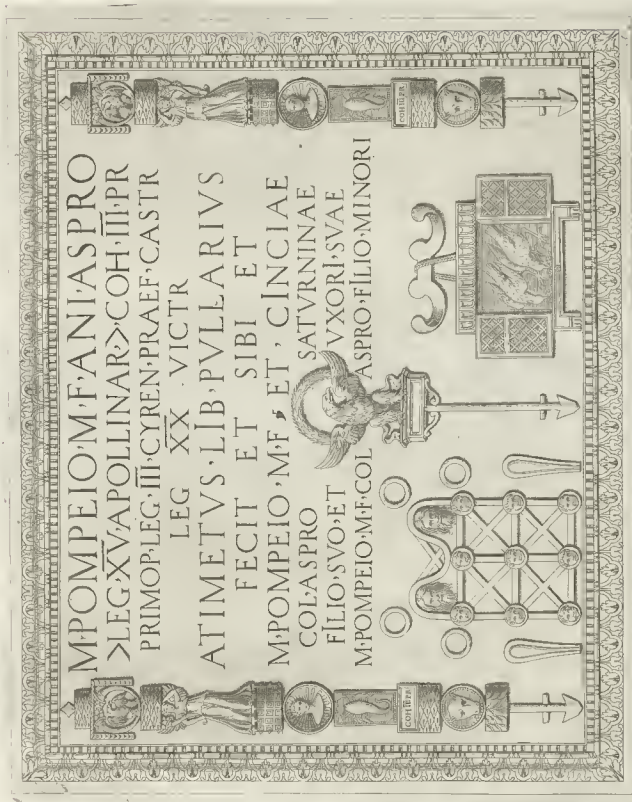 M·POMPEIO·M·F·ANI·ASPRO
>LEG·X̅V̅·APOLLINAR·>·COH·I̅I̅I̅·PR
PRIMOP·LEG·I̅I̅I̅·CYREN·PRAEF·CASTR
LEG X̅X̅ · VICTR
ATIMETVS·LIB·PVLLARIVS
FECIT ET SIBI ET
M·POMPEIO·M·F ET · CINCIAE
COL·ASPRO SATVRNINAE
FILIO·SVO·ET VXORI·SVAE
M·POMPEIO·M·F·COL ASPRO·FILIO·MINORI
COH III PR
COH III PR